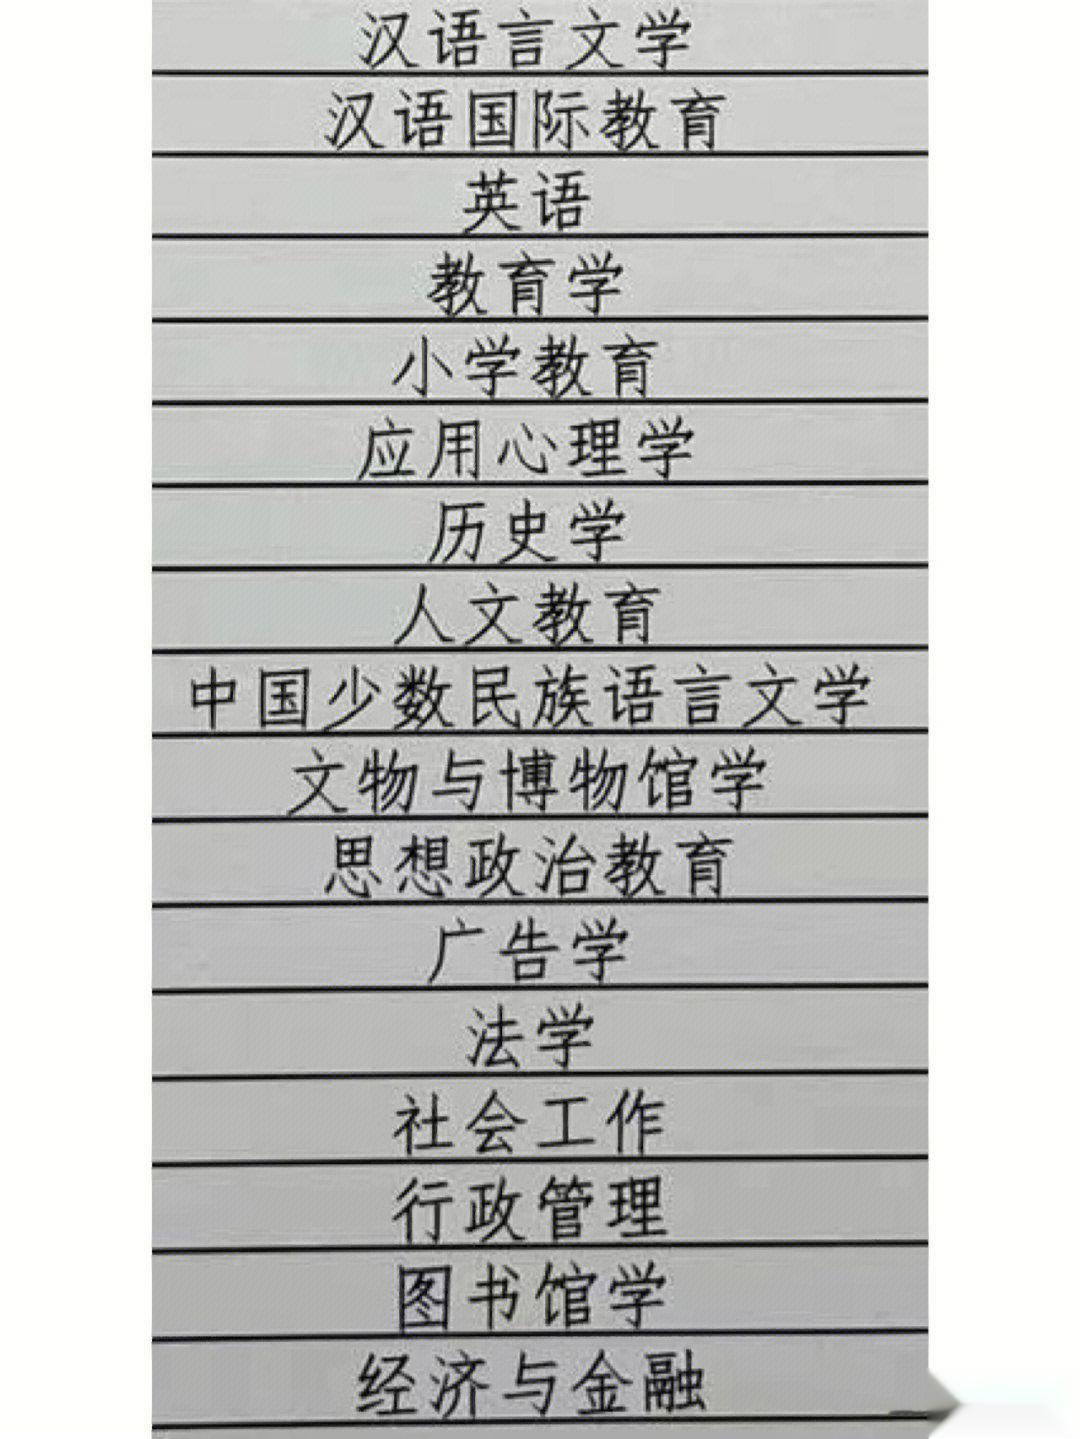 汉语言文学
汉语国际教育
英语
教育学
小学教育
应用心理学
历史学
人文教育
中国少数民族语言文学
文物与博物馆学
思想政治教育
广告学
法学
社会工作
行政管理
图书馆学
经济与金融